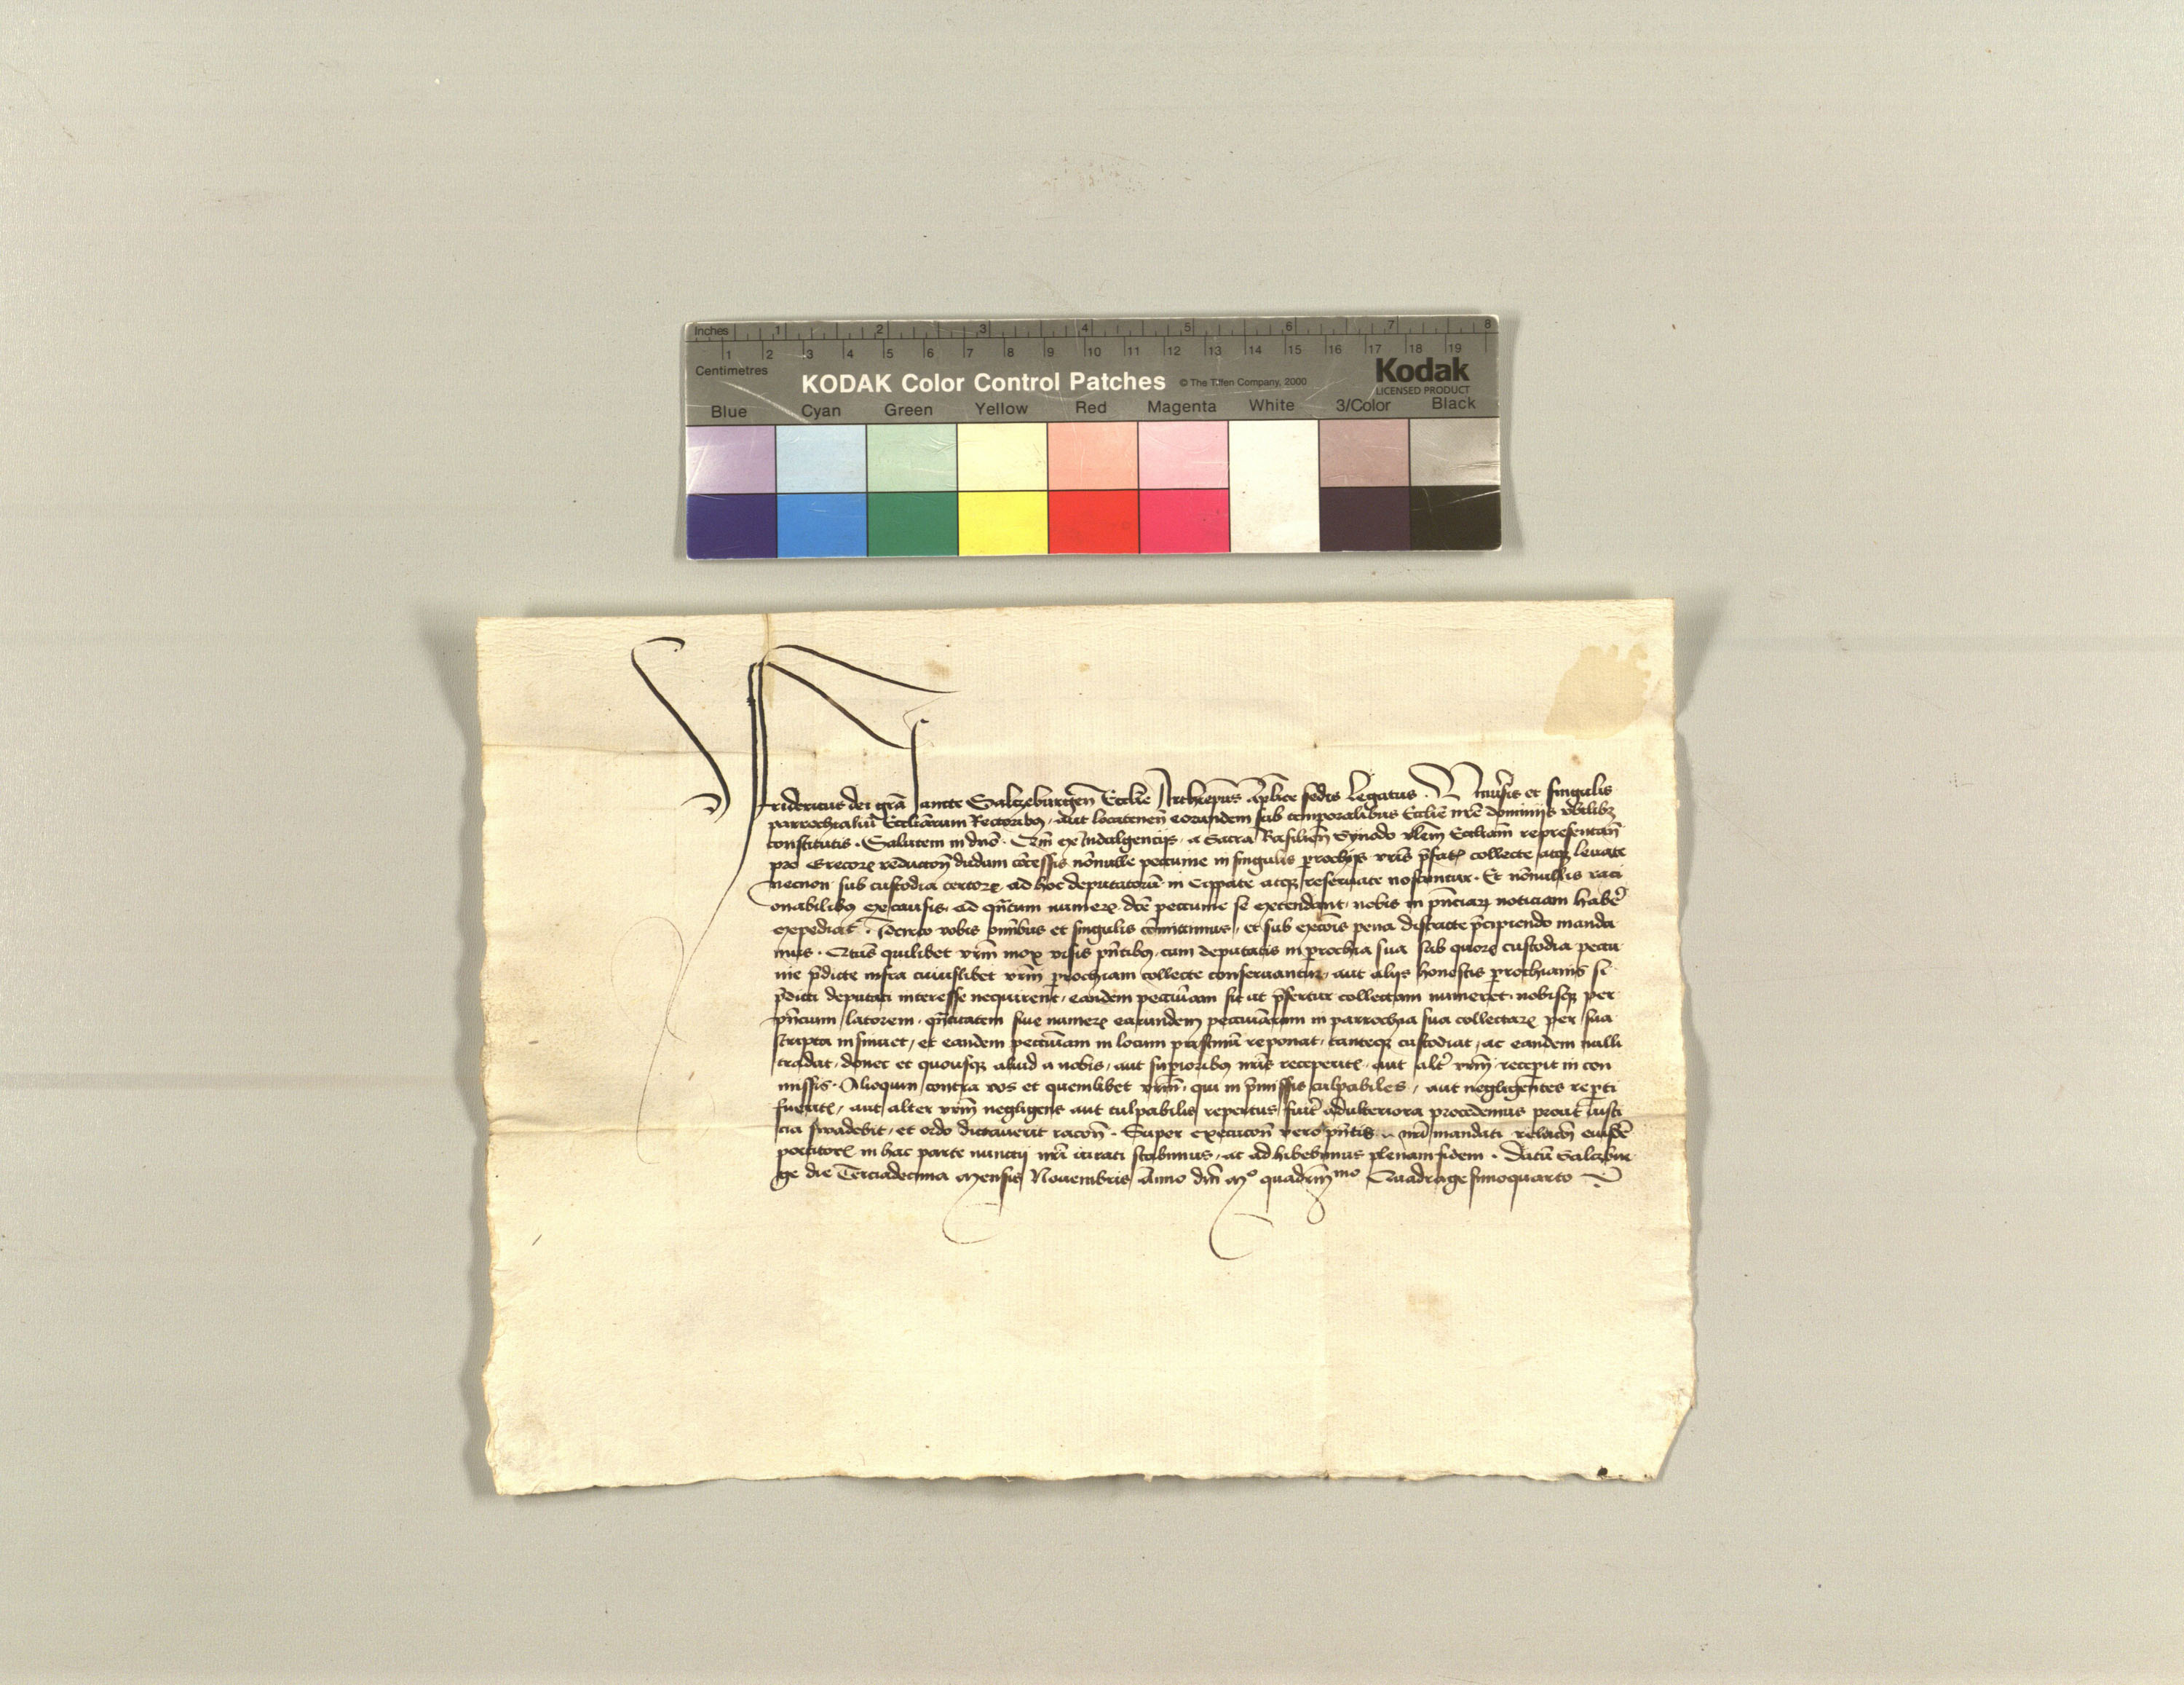 Inches 1 2 3 4 5 6 7 8
1 2 3 4 5 6 7 8 9 10 11 12 13 14 15 16 17 18 19
Centimetres
KODAK Color Control Patches © The Tiffen Company, 2000 Kodak
LICENSED PRODUCT
Blue Cyan Green Yellow Red Magenta White 3/Color Black
Fridericus dei grā sancte Salczeburgen̄ Eccl̄ie Archiep̄us Ap̄lice sedis Legatus . Vniuſis et singulis
parrochialiū Eccl̄iarum Rectoribꝫ, aut locatenen̄ eorundem sub temporalibus Eccl̄ie nr̄e dominijs vb̄ilibꝫ
constitutis . Salutem in dn̄o . Cum ex Indulgencijs, a Sacra Basilien̄ Synodo vl̄em Eccl̄iam representan̄
pro Grecoꝝ reducc̄on̄ dudam cōcessis nōnulle peccunie in singulis p̄rochijs vr̄is p̄fatꝭ collecte atqꝫ leuate
necnon sub custodia certoꝝ, ad hoc deputatorū in Cippate atqꝫ reseruate noscuntur . Et nōnullis raci
onabilibꝫ ex causis, ad qn̄tum numerꝰ dc̄e peccunie se extendant, nobis in pn̄ciaꝝ noticiam haber̄
expediat . Idcirco vobis om̄ibus et singulis cōmittimus, et sub exc̄ois pena districte p̄cipiendo manda
mus . Qtus quilibet vr̄m mox visis pn̄tibꝫ, cum deputatis in p̄rochia sua sub quoꝝ custodia peccu
nie p̄dicte infra cuiuslibet vr̄m p̄rochiam collecte conseruantur, aut alijs honestis p̄rochianis si
p̄dicti deputati interesse nequirent, eandem peccuniam sic ut p̄fertur collectam numeret, nobisqꝫ per
pn̄cium latorem, qn̄titatem siue numerꝰ earundem peccuniarum in parrochia sua collectaꝝ per sua
scripta insinuet, et eandem peccuniam in locum pristinū reponat, cauteqꝫ custodiat, ac eandem nulli
tradat, donec et quousqꝫ aliud a nobis, aut sup̄ioribꝫ nr̄is receperitꝭ, aut alt̄ vr̄m receperit in con
missis . Alioquin contra vos et quemlibet vr̄m, qui in p̄missis culpabiles, aut negligentes rep̄ti
fueritꝭ, aut alter vr̄m negligens aut culpabilis repertus fuit̄ ad ulteriora procedemus prout iusti
cia swadebit, et ordo dictauerit racōn̄ . Super execucōn̄ vero pn̄tis nr̄i mandati relacōn̄ eiusdē
portitorꝭ in hac parte nunctij nr̄i iurati stabimus, ac adhibebimus plenam fidem . Datū Salczbur
ge die Terciadecima Mensis Nouembris Anno dn̄i Mº quadrinᵐᵒ Quadragesimoquarto